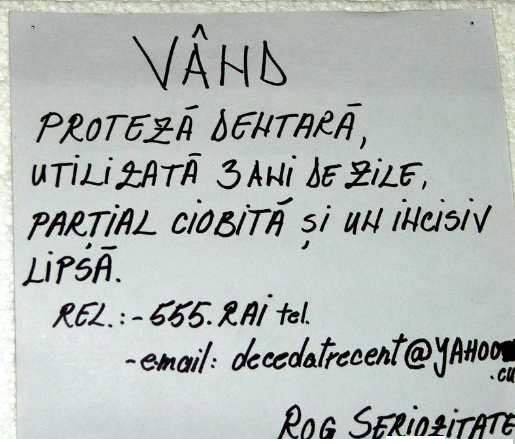 VÂND
PROTEZĂ DENTARĂ,
UTILIZATĂ 3 ANI DE ZILE,
PARȚIAL CIOBITĂ ȘI UN INCISIV
LIPSĂ.
REL.: - 555.RAI tel.
- email: decedatrecent@YAHOO
.CU
ROG SERIOZITATE